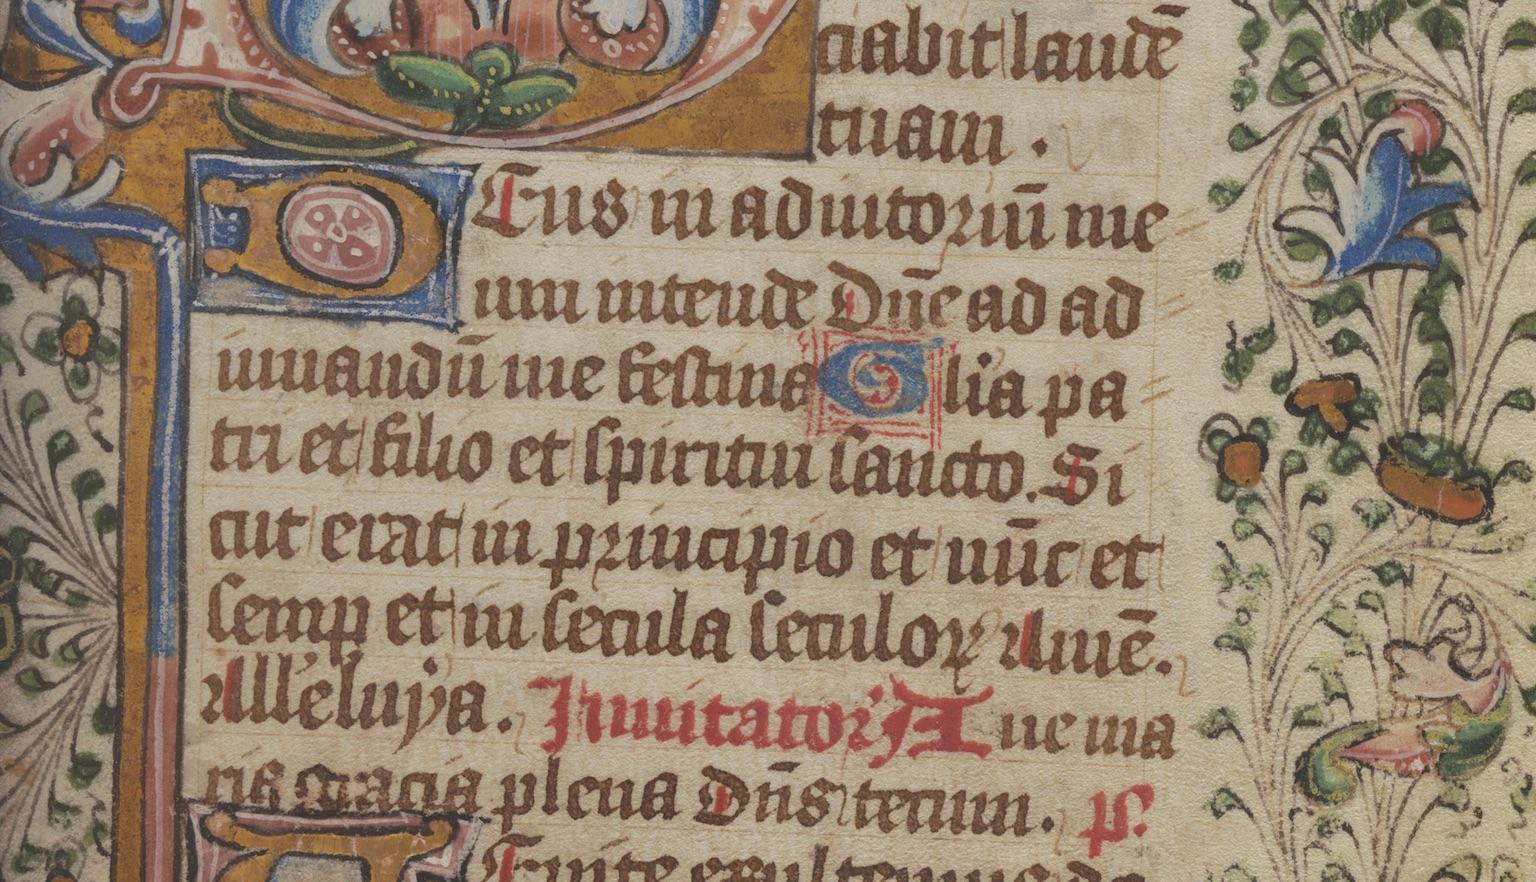 ciabit laudē
tuam.
DEus in adiutoriū me
um intende Dn̄e ad ad
iuuandū me festina Glia pa
tri et filio et spiritui sancto. Si
cut erat in principio et nūc et
semp et in secula seculoꝝ Amē.
Alleluya. Inuitator' Aue ma
ria gracia plena Dn̄s tecum. ps.
Uenite exultemus do